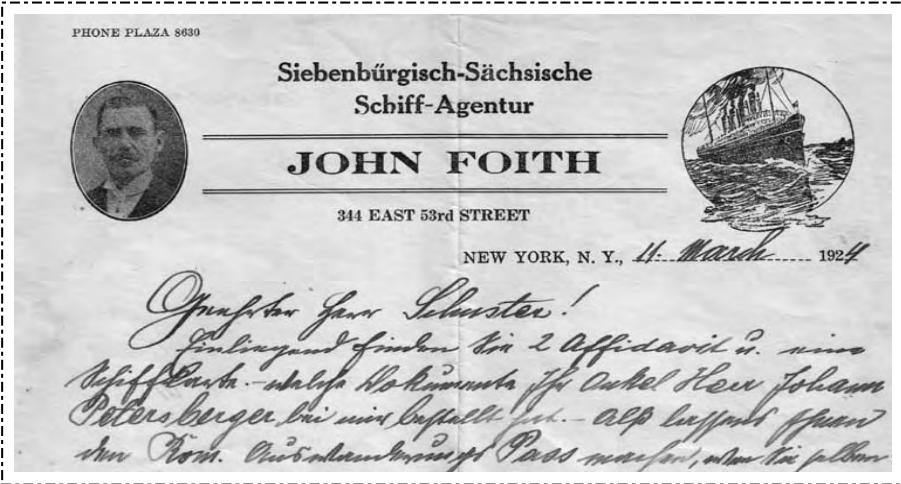 PHONE PLAZA 8630
Siebenbűrgisch-Sächsische
Schiff-Agentur
JOHN FOITH
344 EAST 53rd STREET
NEW YORK, N. Y., 11. March 1924
Geehrter Herr Schuster!
Einliegend finden Sie 2 Affidavit u. eine
Schiffkarte. – welche Dokumente Ihr Onkel Herr Johann
Petersberger bei mir bestellt hat. – lassens Ihnen
den Rom. Auswanderungs Pass machen, wen Sie selben